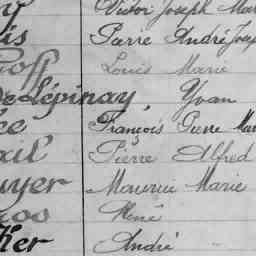 Victor Joseph Mar
is Pierre André Jose
off Louis Marie
de Lépinay, Yvan
ce François Pierre Mar
ail Pierre Alfred
uyer Maurice Marie
cos René
Ker André